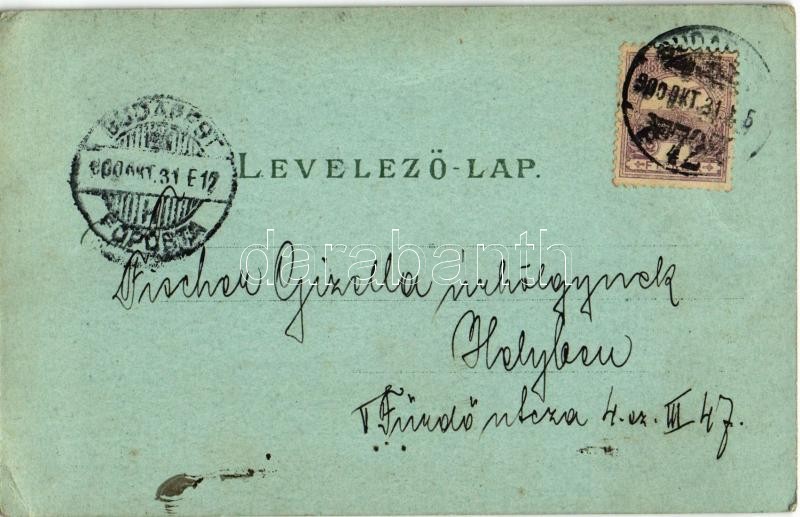 BUDAPEST
900 OKT. 31 E 12
FŐPOSTA
LEVELEZŐ-LAP.
900 OKT. 31
42
darabanth
Fischer Gizella úrhölgynek
Helyben
V Fürdő utcza 4. sz. III 47.